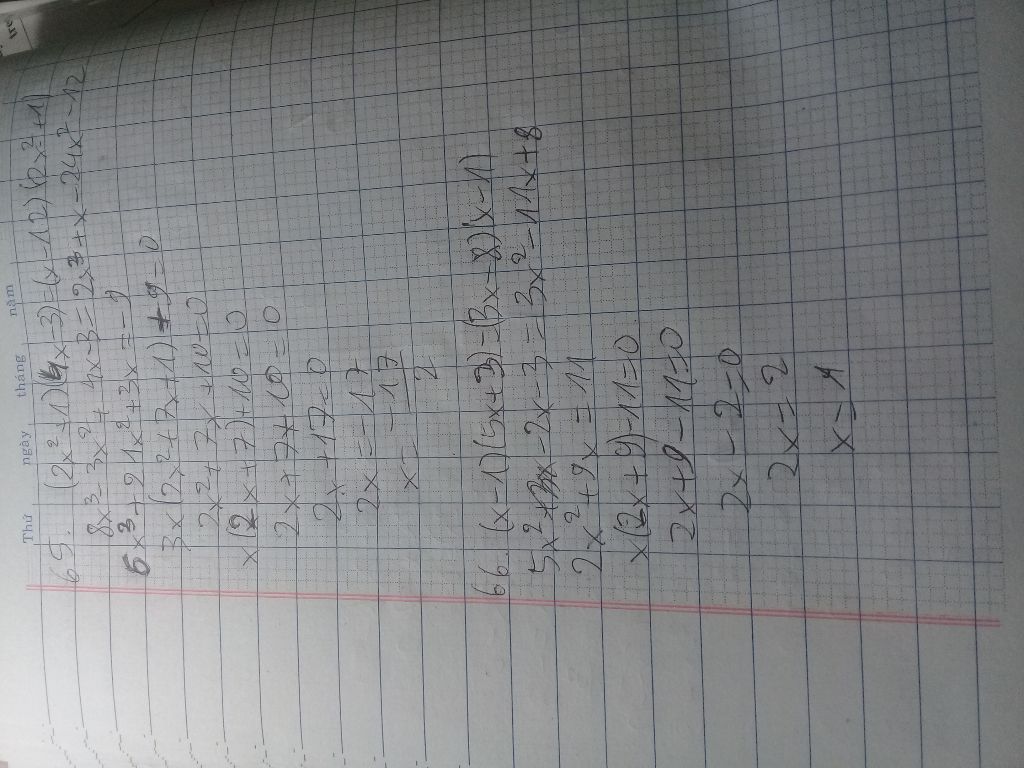 Thứ ngày tháng năm
65. (2x²+1)(4x-3)=(x-12)(2x²+1)
8x³-3x²+4x-3=2x³+x-24x²-12
6x³+21x²+3x=-9
3x(2x²+7x+1)+9=0
2x²+7x+10=0
x(2x+7)+10=0
2x+7+10=0
2x+17=0
2x=-17
x=-17/2
66. (x-1)(5x+3)=(3x-8)(x-1)
5x²+3x-2x-3=3x²-11x+8
2x²+9x=11
x(2x+9)-11=0
2x+9-11=0
2x-2=0
2x=2
x=1